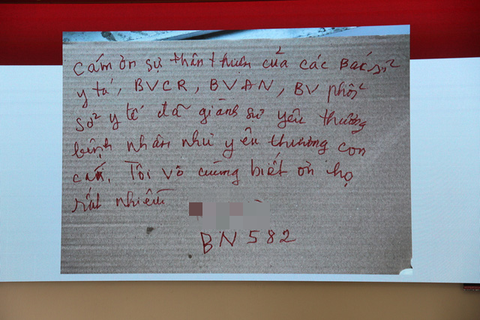 cám ơn sự thân thiện của các Bác sĩ
y tá, BVCR, BVAN, BV phổi
sở y tế đã giành sự yêu thương
bệnh nhân như yêu thương con
cái, Tôi vô cùng biết ơn họ
rất nhiều
BN 582